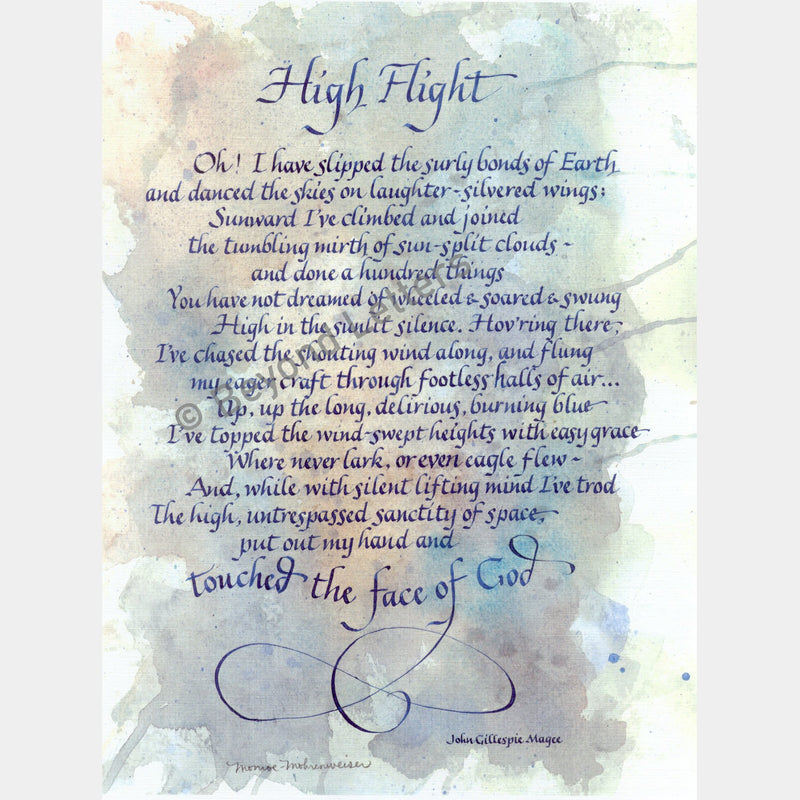 High Flight
Oh! I have slipped the surly bonds of Earth
and danced the skies on laughter-silvered wings;
Sunward I've climbed and joined
the tumbling mirth of sun-split clouds -
and done a hundred things
You have not dreamed of wheeled & soared & swung
High in the sunlit silence. Hov'ring there,
I've chased the shouting wind along, and flung
my eager craft through footless halls of air...
Up, up the long, delirious, burning blue
I've topped the wind-swept heights with easy grace
Where never lark, or even eagle flew -
And, while with silent lifting mind I've trod
The high, untrespassed sanctity of space,
put out my hand and
touched the face of God
John Gillespie Magee
Monroe-Mohrenweiser
© Beyond Letters